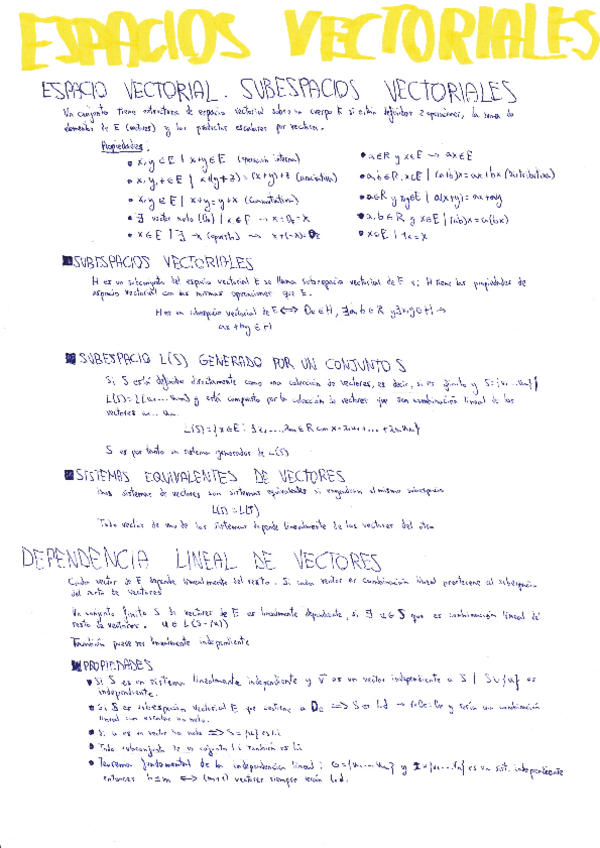 ESPACIOS VECTORIALES
ESPACIO VECTORIAL. SUBESPACIOS VECTORIALES
Un conjunto tiene estructura de espacio vectorial sobre un cuerpo K si están definidas 2 operaciones, la suma de
elementos de E (vectores) y los productos escalares por vectores.
Propiedades:
• x, y ∈ E | x+y ∈ E (operación interna)
• a ∈ R y x ∈ E → ax ∈ E
• x, y, z ∈ E | x+(y+z) = (x+y)+z (asociativa)
• a, b ∈ R, x ∈ E | (a+b)x = ax+bx (Distributiva)
• x, y ∈ E | x+y = y+x (conmutativa)
• a ∈ R y x, y ∈ E | a(x+y) = ax+ay
• ∃ vector nulo
• a, b ∈ R y x ∈ E | (ab)x = a(bx)
• x ∈ E | ∃ -x (opuesto) → x+(-x) = 0E
• x ∈ E | 1x = x
SUBESPACIOS VECTORIALES
H es un subconjunto del espacio vectorial E se llama subespacio vectorial de E si H tiene las propiedades de
espacio vectorial con las mismas operaciones que E.
H es un subespacio vectorial de E ⟺ 0E ∈ H,
ax + by ∈ H
SUBESPACIO L(S) GENERADO POR UN CONJUNTO S
Si S está definido directamente como una colección de vectores, es decir, si es finito y S=
y está compuesto por la colección de vectores que son combinación lineal de los
vectores
S es por tanto un sistema generador de L(S)
SISTEMAS EQUIVALENTES DE VECTORES
Dos sistemas de vectores son sistemas equivalentes si engendran el mismo subespacio
L(S) = L(T)
Todo vector de uno de los sistemas depende linealmente de los vectores del otro
DEPENDENCIA LINEAL DE VECTORES
Cada vector de E depende linealmente del resto. Si cada vector es combinación lineal pertenece al subespacio
del resto de vectores
Un conjunto finito S de vectores de E es linealmente dependiente, si ∃ u ∈ S que es combinación lineal del
resto de vectores.
También puede ser linealmente independiente
PROPIEDADES
• Si S es un sistema linealmente independiente y v es un vector independiente a S | S∪{u} es
independiente.
• Si S es subespacio vectorial E que contiene a 0E ⟹ S es l.d → y sería una combinación
lineal con escalar no nulo.
• Si u es un vector no nulo ⟹ S={u} es l.i
• Todo subconjunto de un conjunto l.i también es l.i
• Teorema fundamental de la independencia lineal: y es un sist. independiente
entonces h≤m ⟺ (m+1) vectores siempre serán l.d.